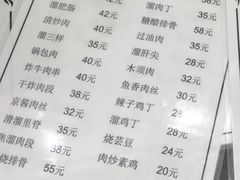 溜肥肠 42元
清炒肉 40元
溜三样 35元
锅包肉 40元
炸牛肉串 40元
干炸肉段 38元
京酱肉丝 32元
滑溜里脊 35元
焦溜肉段 38元
烧排骨 55元
溜肉丁 38元
糖醋排骨 58元
过油肉 35元
溜肝尖 28元
木须肉 32元
鱼香肉丝 30元
辣子鸡丁 28元
溜鸡丁 28元
烧芸豆 24元
肉炒素鸡 20元